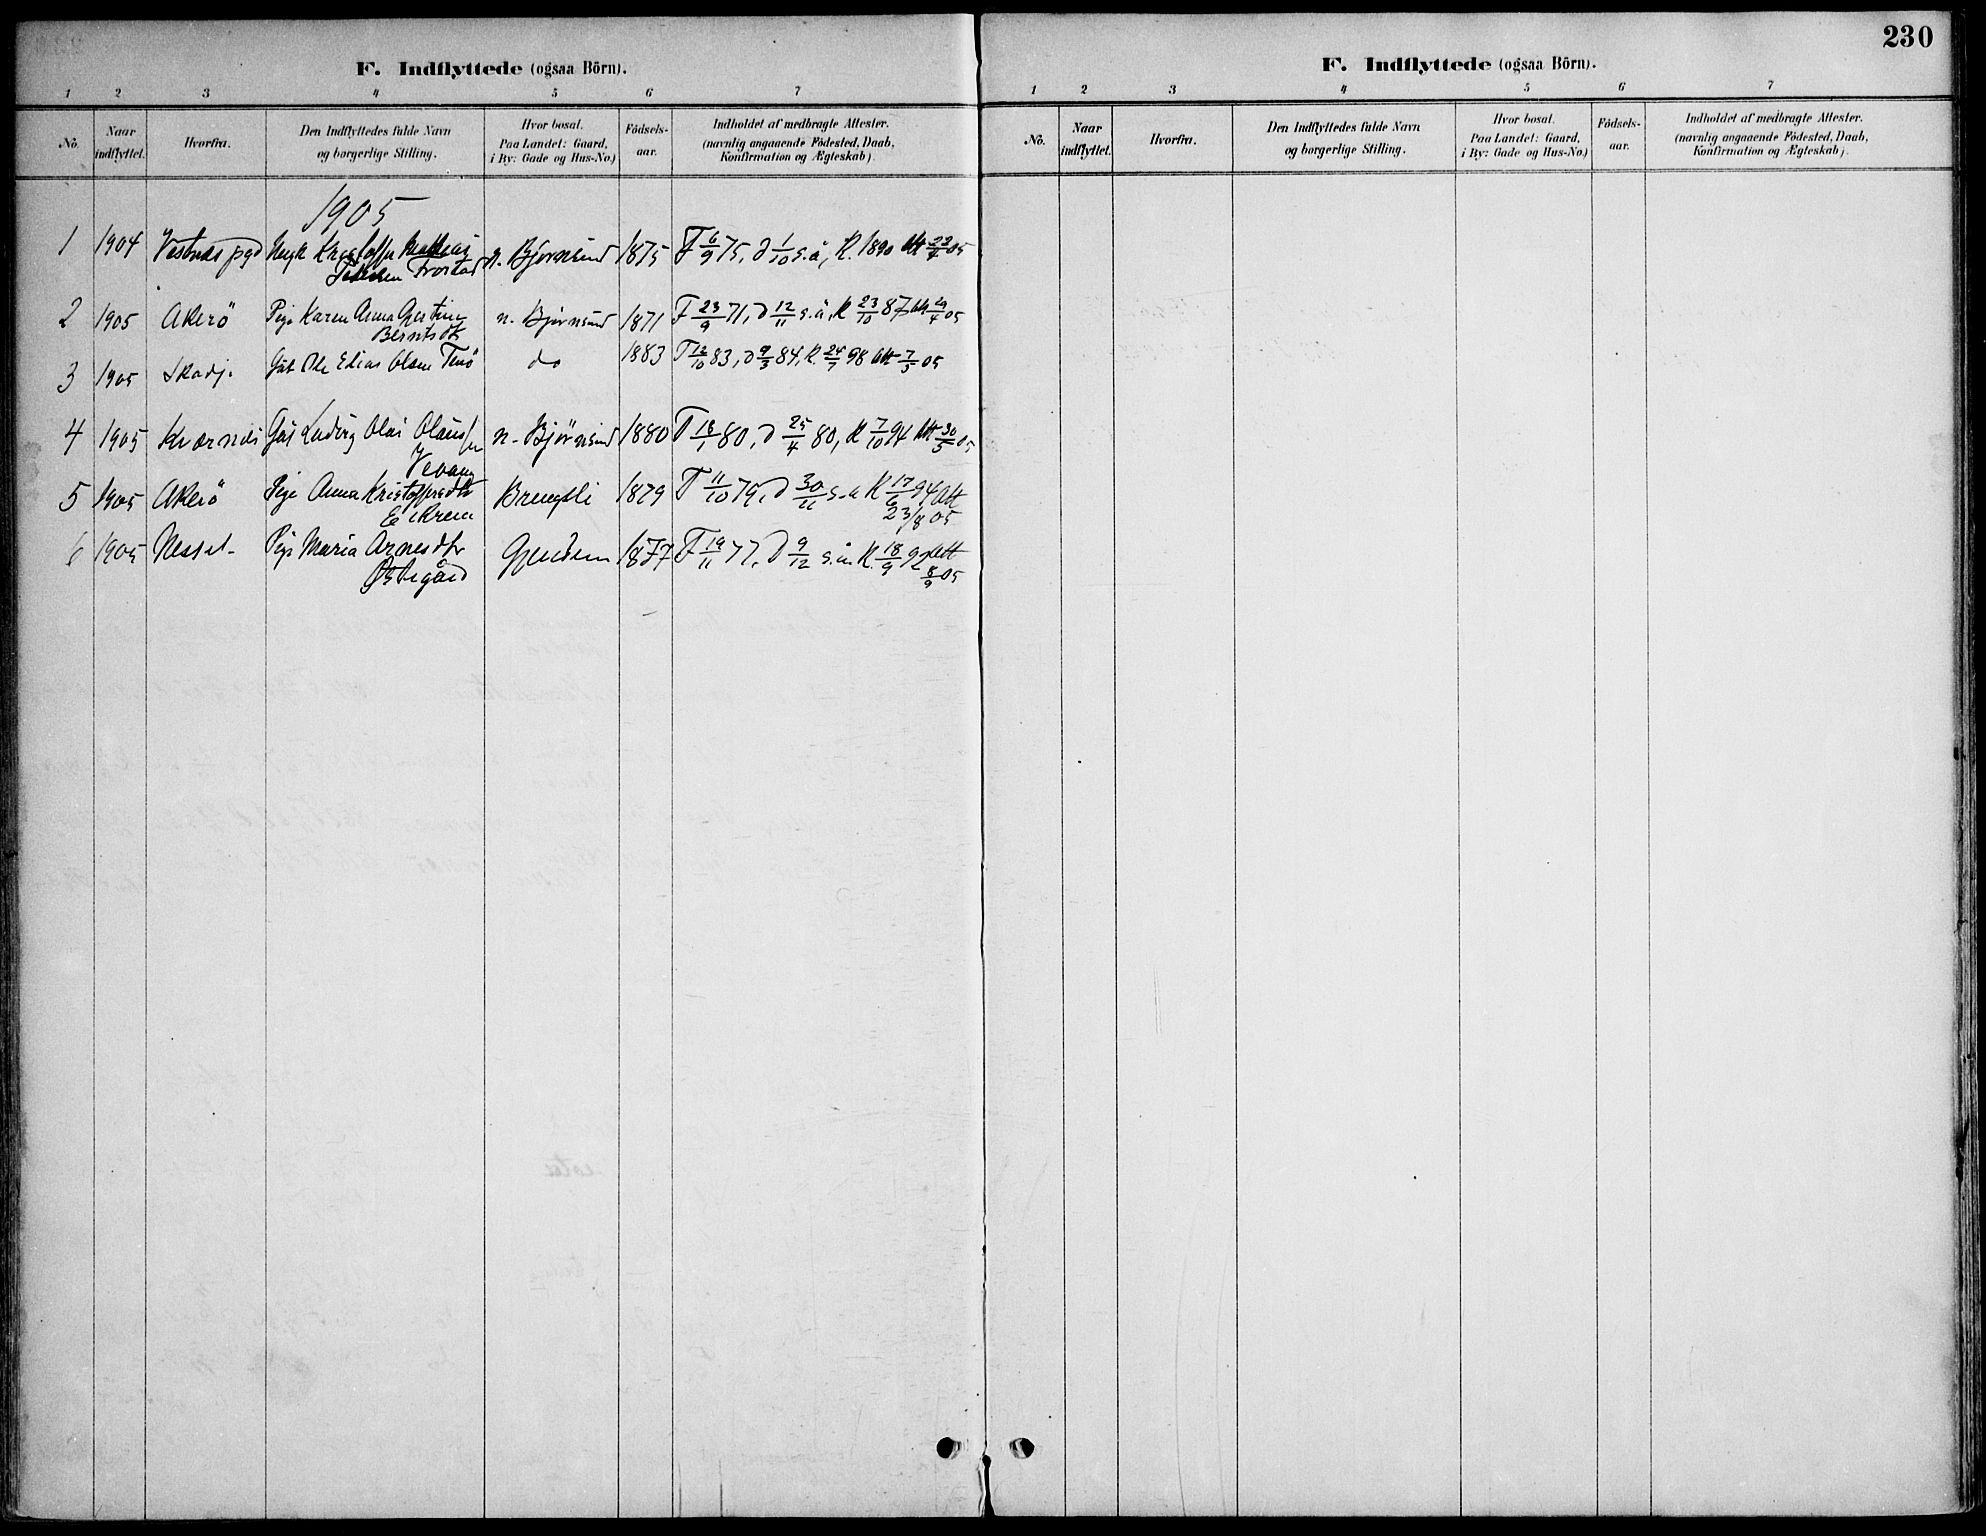 230
F. Indflyttede (ogsaa Börn).
1 2 3 4 5 6 7
No. Naar indflyttet. Hvorfra. Den Indflyttedes fulde Navn og borgerlige Stilling. Hvor bosat. Paa Landet: Gaard, i By: Gade og Hus-No.) Födsels-aar. Indholdet af medbragte Attester. (navnlig angaaende Födested, Daab, Konfirmation og Ægteskab).
1905
1 1904 Vestnæs pgd Kristoffer Mathias n. Björnsund 1875 F 6/9 75, d 1/10 s.å, K. 1890 Att 23/4 05
Frostad
2 1905 Akerö Pige Karen Anna n. Björnsund 1871 F 23/9 71, d 12/11 s.å, K 23/10 87 Att 29/4 05
Berntsdtr
3 1905 Skodj. Gut Ole Elias Olsen do 1883 F 12/10 83, d 9/3 84, K. 98 Att 7/5 05
4 1905 Kværnes Gut Ludvig Olai n. Björnsund 1880 F 18/1 80, d 25/4 80, K 7/10 94 Att 30/5 05
5 1905 Akerö Pige Anna Kristoffersdtr 1879 F 11/10 79, d 30/11 s.a K 17/6 94 Att
Eikrem 23/8 05
6 1905 Nesset Pige Maria Arnesdtr Gjendem 1877 F 19/11 77, d 9/12 s.å. K. 18/9 92 Att
Østigård 8/9 05
F. Indflyttede (ogsaa Börn).
1 2 3 4 5 6 7
No. Naar indflyttet. Hvorfra. Den Indflyttedes fulde Navn og borgerlige Stilling. Hvor bosat. Paa Landet: Gaard, i By: Gade og Hus-No.) Födsels-aar. Indholdet af medbragte Attester. (navnlig angaaende Födested, Daab, Konfirmation og Ægteskab).